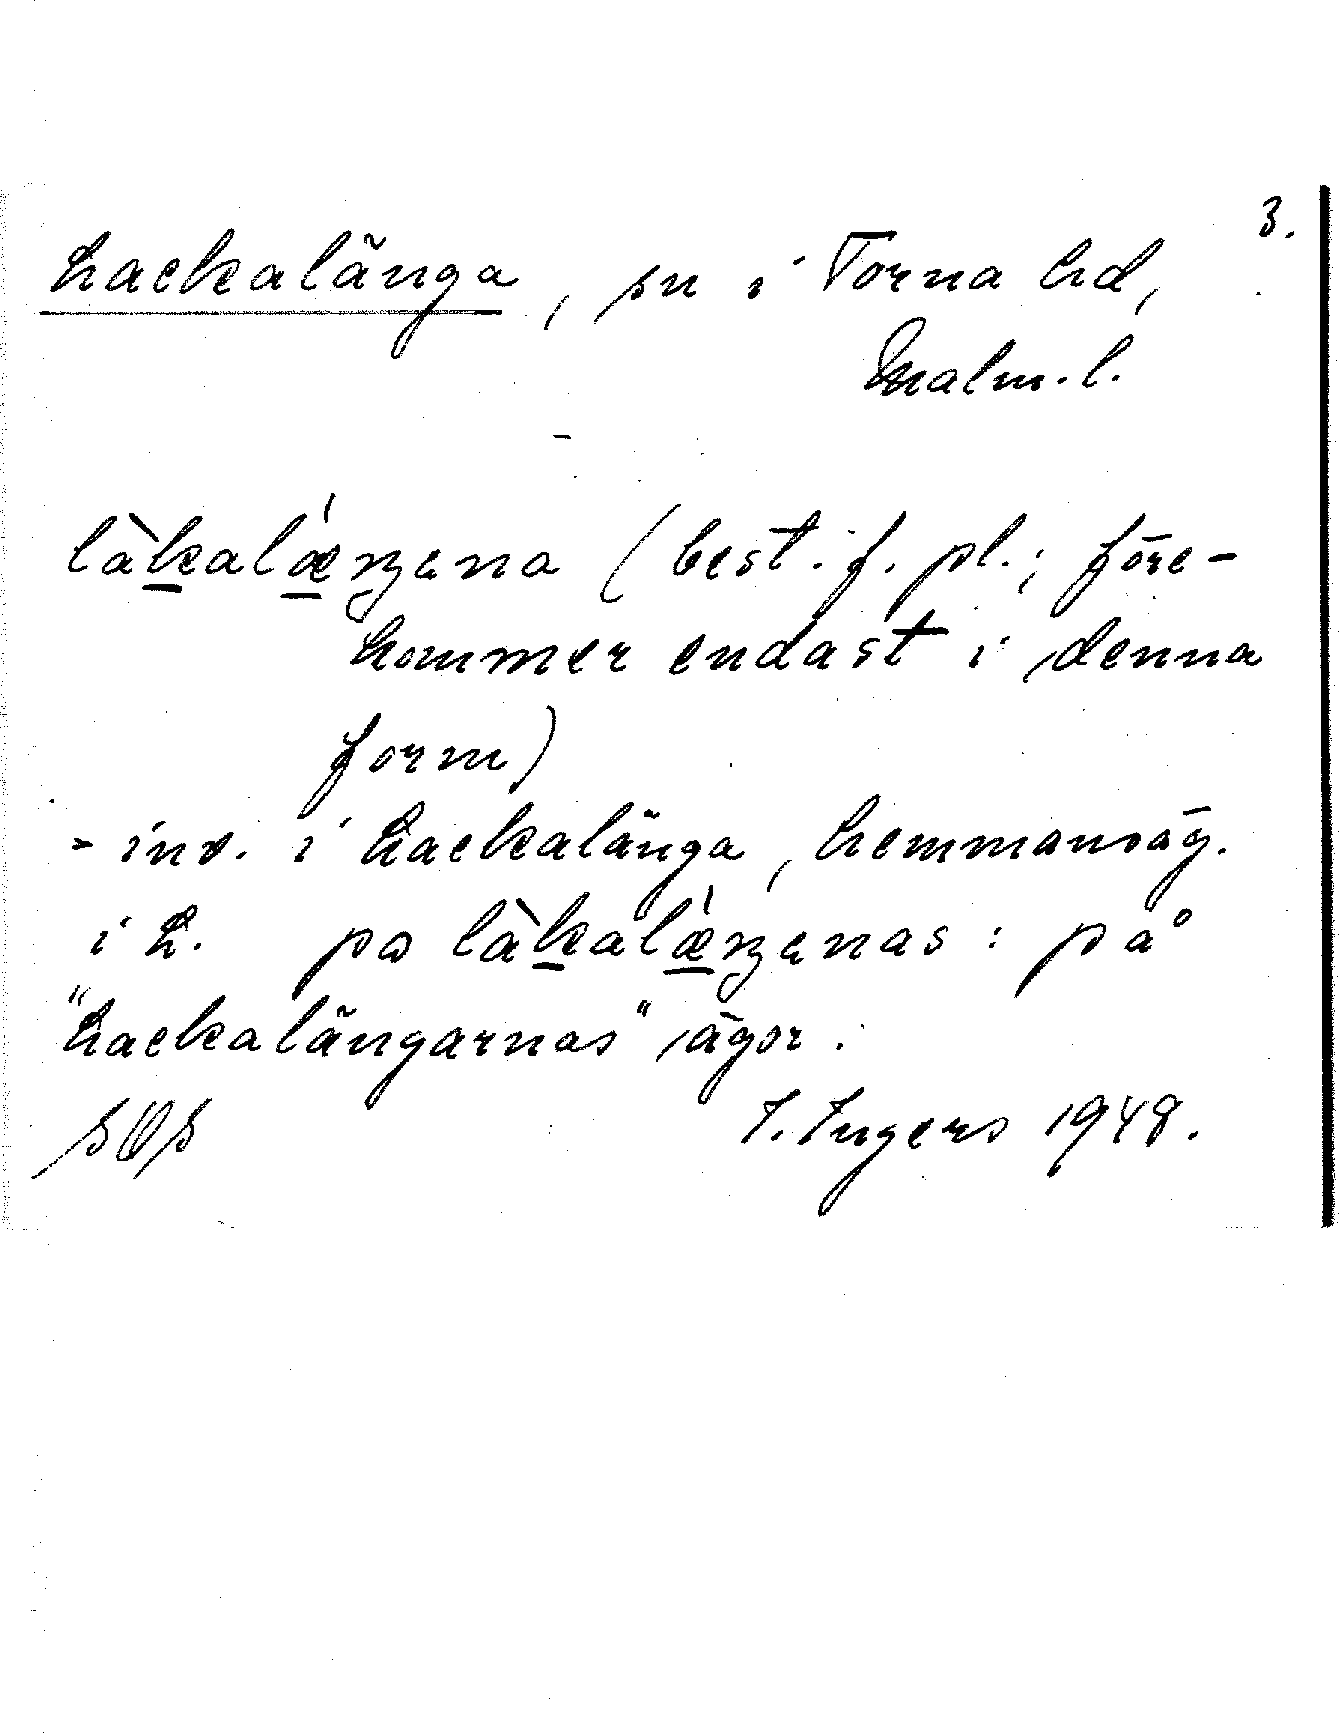 3.
Lackalänga, sn i Torna hd,
Malm. l.
làkalǽŋana (best. f. pl.; före-
kommer endast i denna
form)
= inv. i Lackalänga, hemmansäg.
i L. pa làkalǽŋanas: på
"Lackalängarnas" ägor.
SOS
I. Ingers 1948.